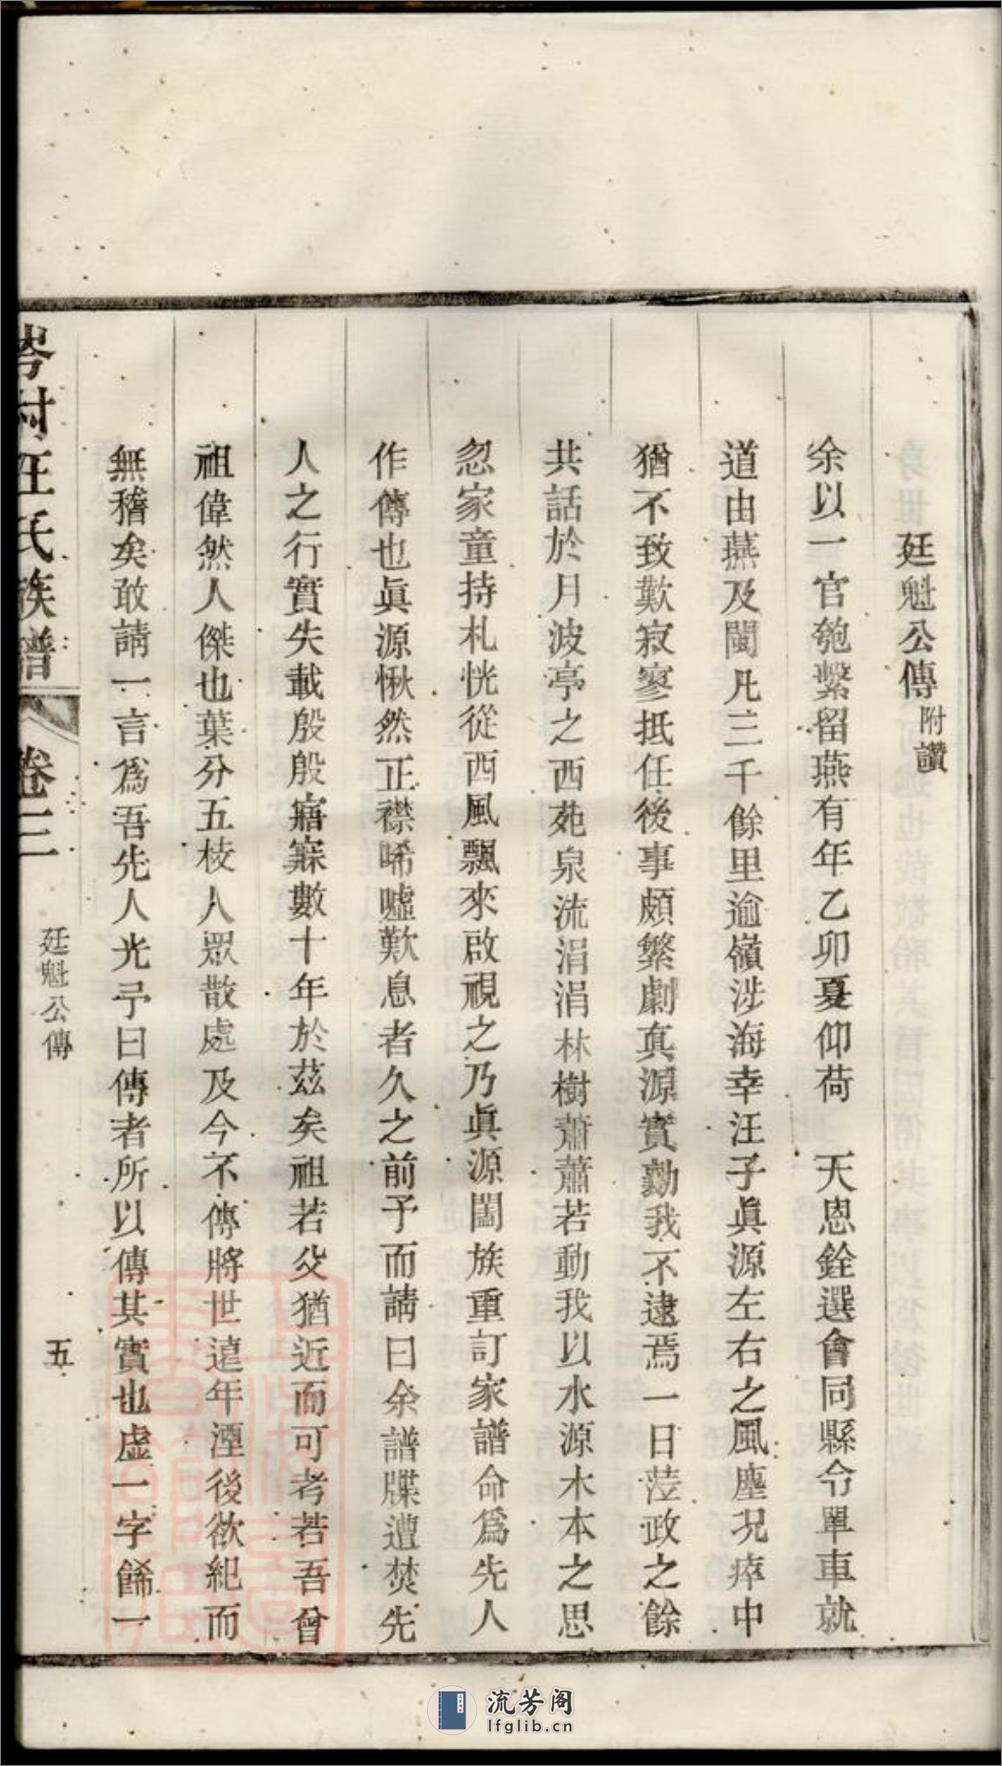 廷魁公傳附讚
余以一官匏繫留燕有年乙卯夏仰荷　天恩銓選會同縣令單車就
道由燕及閩凡三千餘里逾嶺涉海幸汪子眞源左右之風塵況瘁中
猶不致歎寂寥抵任後事頗繁劇真源實勷我不逮焉一日蒞政之餘
共話於月波亭之西苑泉流涓涓林樹蕭蕭若動我以水源木本之思
忽家童持札恍從西風飄來啟視之乃眞源闔族重訂家譜命爲先人
作傳也眞源愀然正襟唏噓歎息者久之前予而請曰余譜牒遭焚先
人之行實失載殷殷寤寐數十年於茲矣祖若父猶近而可考若吾曾
祖偉然人傑也葉分五棱人眾散處及今不傳將世遠年湮後欲紀而
無稽矣敢請一言爲吾先人光予曰傳者所以傳其實也虛一字餙一
岑村汪氏族譜
卷二
廷魁公傳
五
流芳阁
lfglib.cn